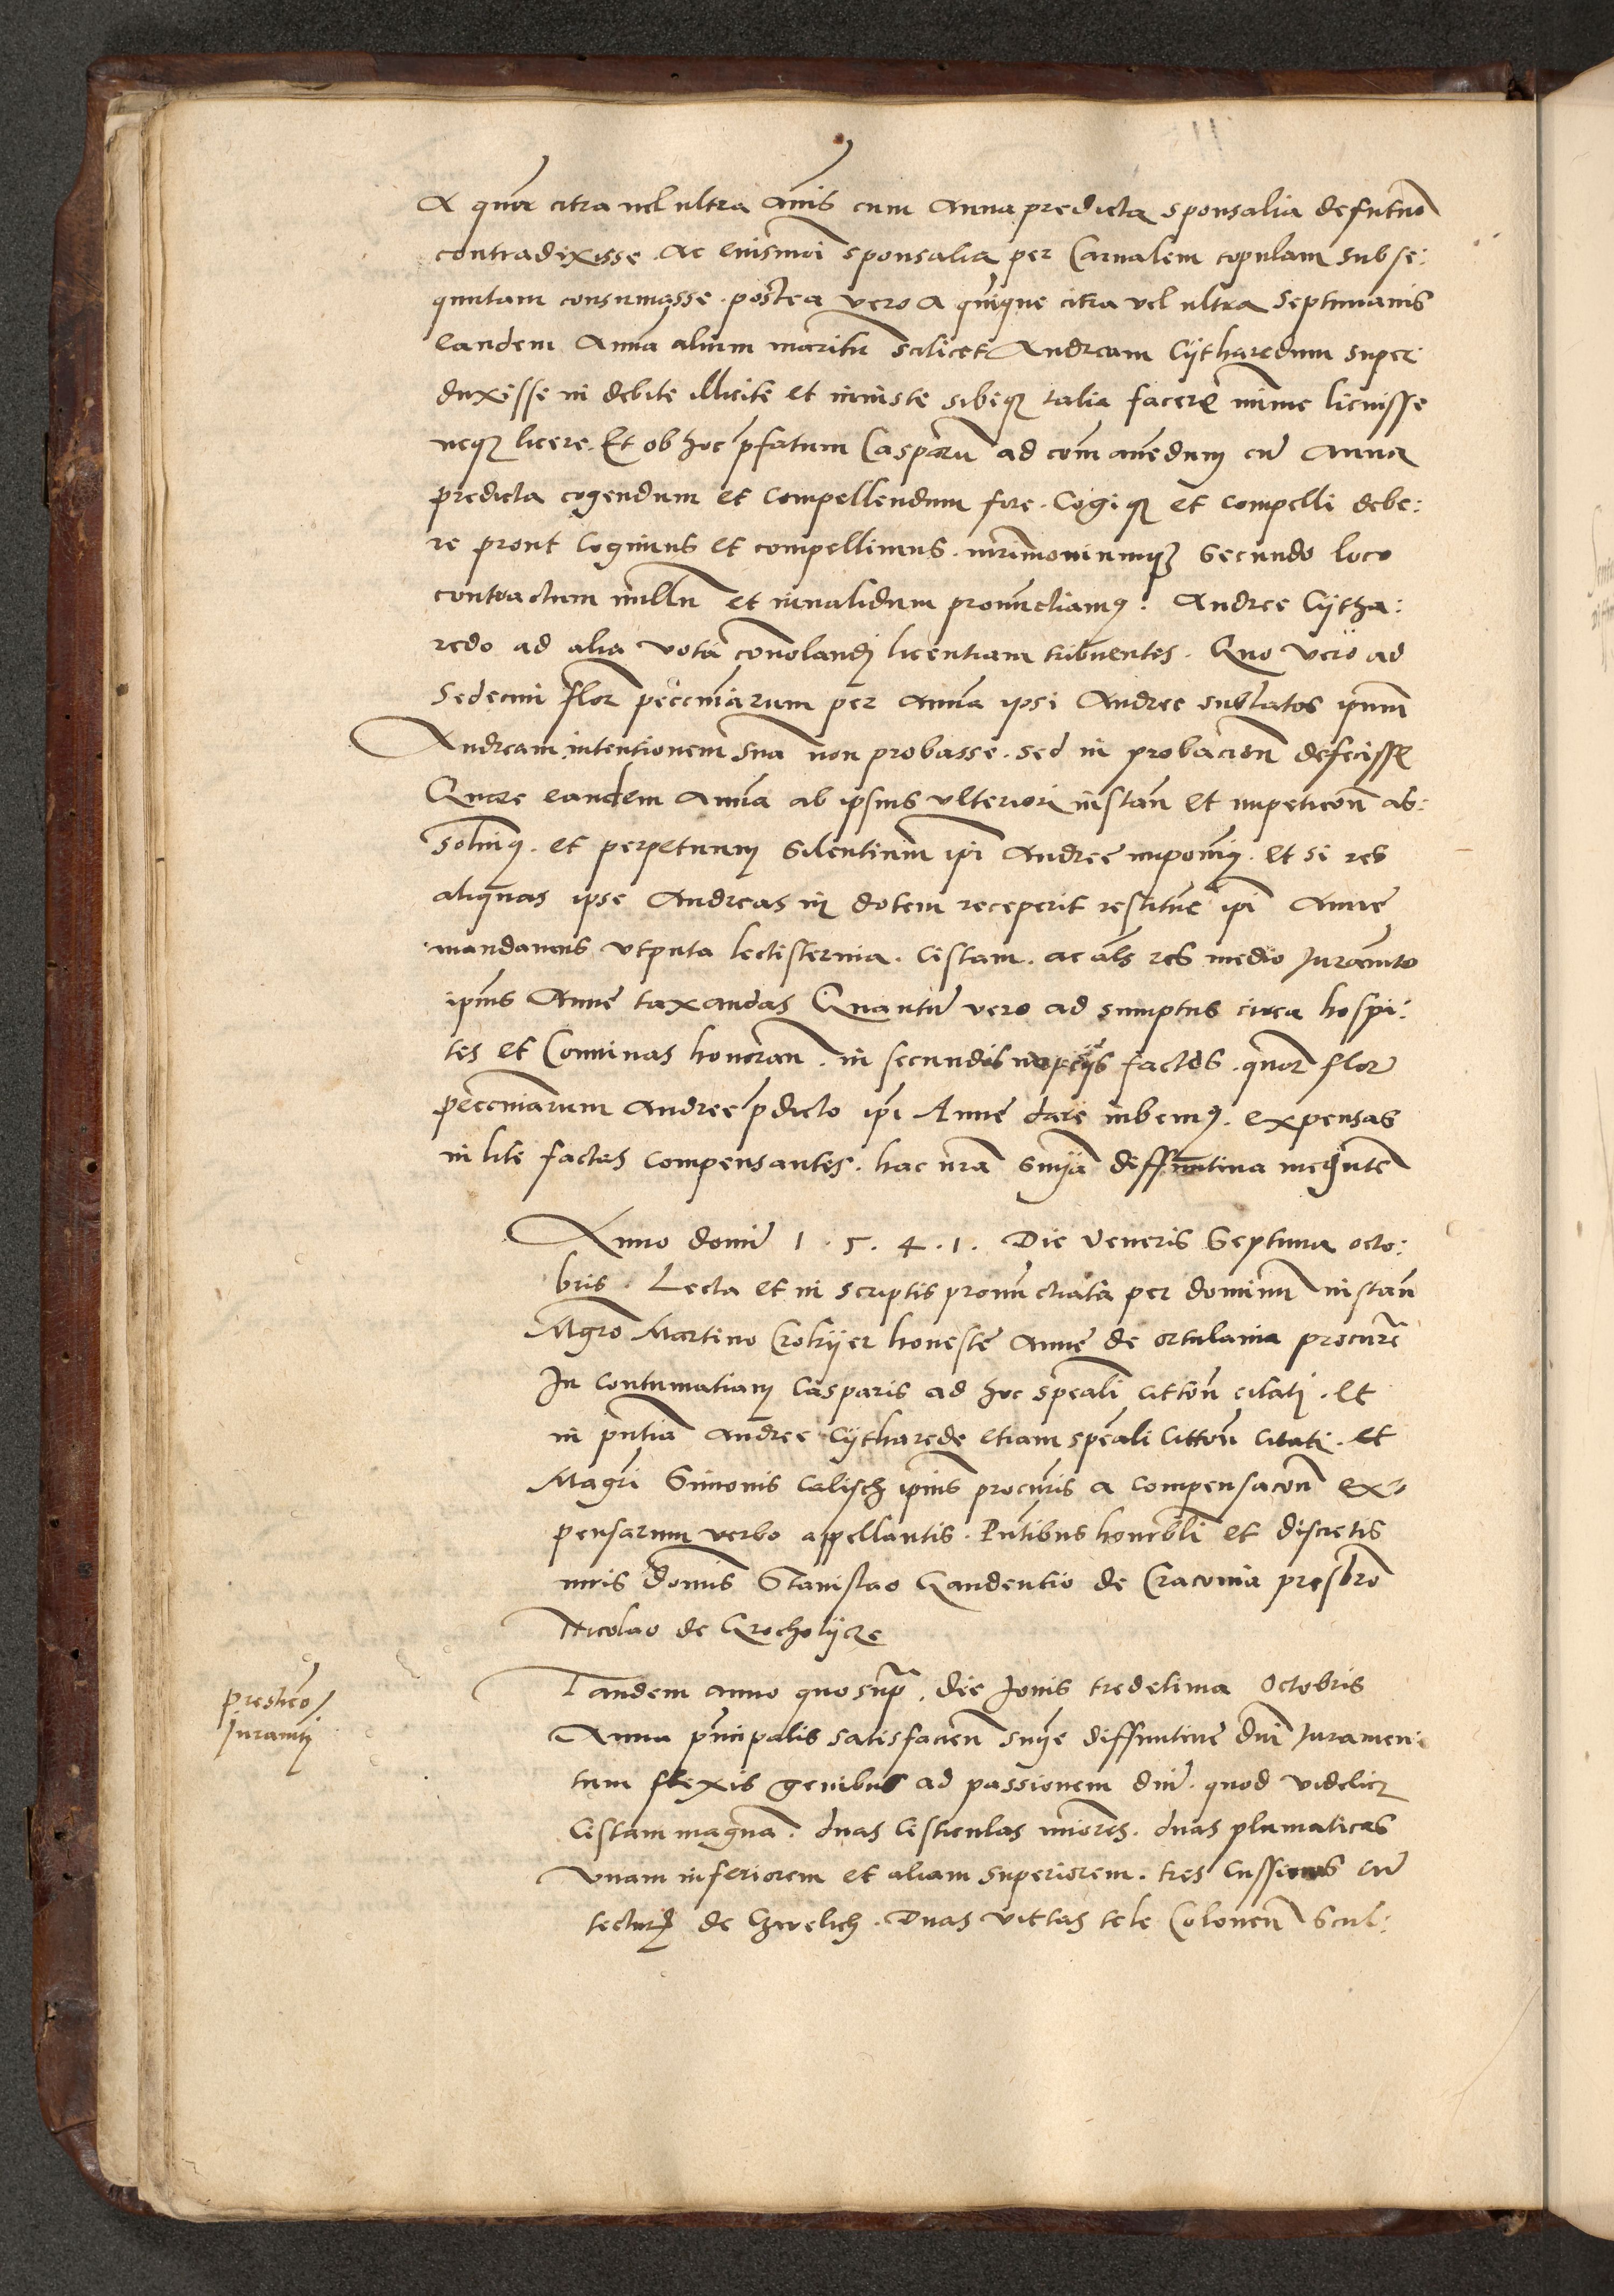 A quor citra vel ultra annis cum Anna predicta sponsalia de futuro
contradixisse Ac eiusmoi sponsalia per Carnalem copulam subse:
quutam consumasse. postea vero a quinque citra vel ultra septimanis
eandem Annã alium maritũ scilicet Andream Cÿtharedum super
duxisse in debite illicite et iniuste sibiqꝫ talia facere mĩme licuisse
neqꝫ licere. Et ob hoc p̃fatum Casparũ ad com̃ anendum cũ Anna
predicta cogendum et compellendum fore. Cogiqꝫ et compelli debe:
re prout cogimus et compellimus. mr̃imoniumqꝫ secundo loco
contractum nullũ et inualidum pronunctiamꝰ. Andree Cÿtha:
redo ad alia vota conuolandi licentiam tribuentes. Quo vero ad
Sedecim flor pecuniarum per Annã ipsi Andree sublatos ip̃um
Andream intentionem suã non probasse. sed in probacioñ defecisse
Quare eandem Annã ab ipsius vlteriori instañ et impeticoñ ab:
soluimꝰ. et perpetuum silentium ip̃i Andree imponimꝰ. et si res
aliquas ipse Andreas in dotem receperit restituẽ ip̃i Anne
mandamus vtputa lectisternia. Cistam. ac als res medio Juramto
ip̃ius Anne taxandas Quantũ vero ad sumptus circa hospi:
tes et Conuiuas honorañ. in secundis nuptÿs factos. quor flor
pecuniarum Andree p̃dicto ip̃i Anne dare iubemꝰ. expensas
in lite factas compensantes. hac nr̃a sniã diffinitiua mediañte
Anno domi 1.5.4.1. Die Veneris Septima octo:
bris. Lecta et in scriptis pronunctiata per dominũ instañ
Mgro Martino Crokÿer honeste Anne de ortulania procure
In contumatiam Casparis ad hoc speciali cittoñ citati. et
in pñtia Andree Cÿtharede etiam speciali cittoñ citati. et
Magri Simonis Calisch ip̃ius procuris a compensacoñ ex
pensarum verbo appellantis. Pñtibus honorabli et discretis
viris Domĩs Stanislao Gaudentio de Cracouia presbro
Nicolao de Grocholÿcze
prestico
Juramti
Tandem anno quo supᵃ. die Jouis tredecima Octobris
Anna principalis satisfacieñ snie diffinitiue dni Juramen:
tum flexis genibus ad passionem dni. quod videlicꝫ
Cistam magnã. duas cisticulas miores. duas plumaticas
vnam inferiorem et aliam superiorem. tres cussinos cũ
tectur de Czwelich. Duas vittas tele Coloneñ Scul: